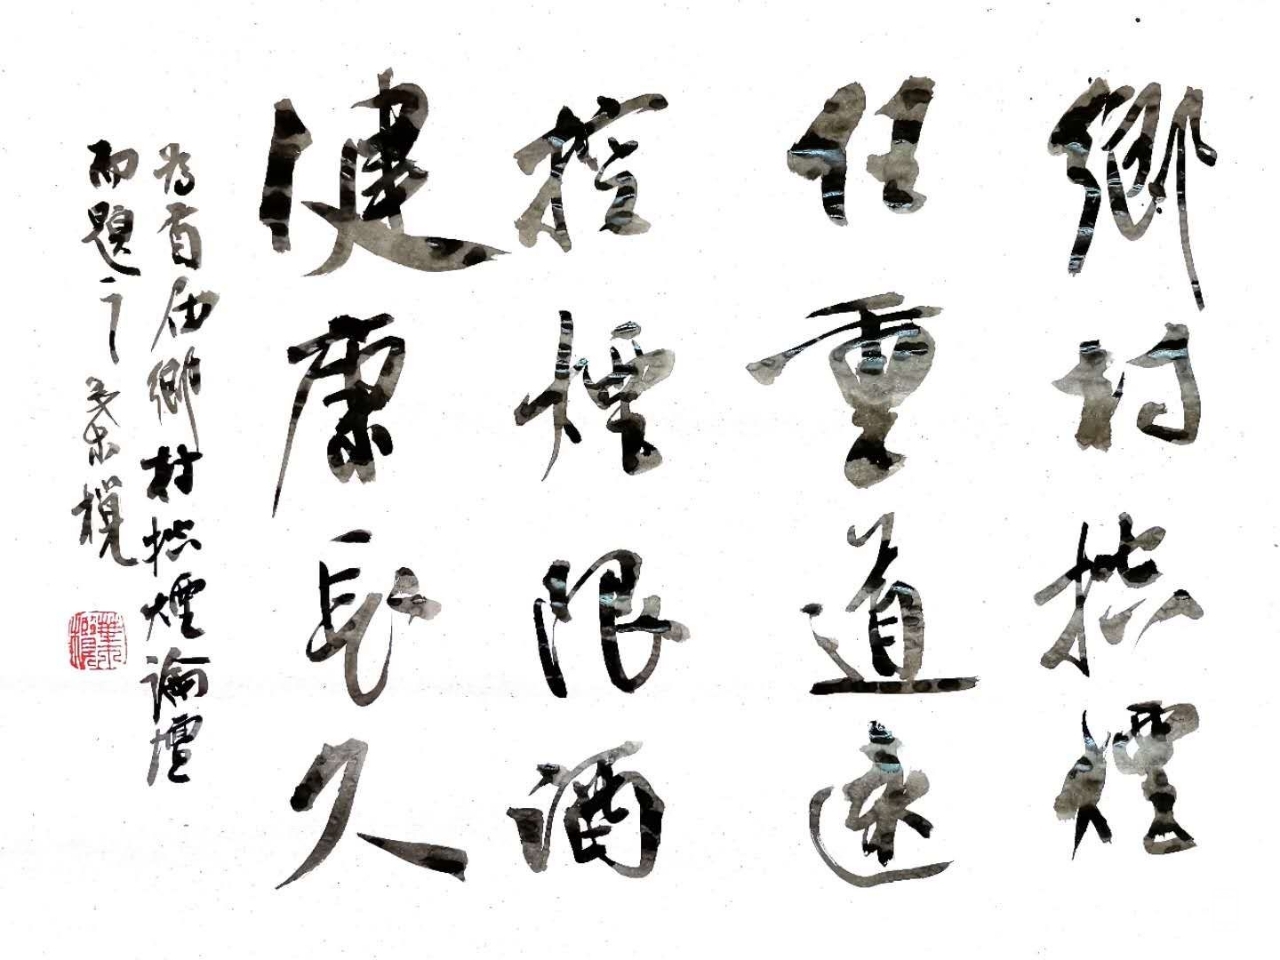 鄉村控煙
任重道遠
控煙限酒
健康長久
為首届鄉村控煙論壇
而題之